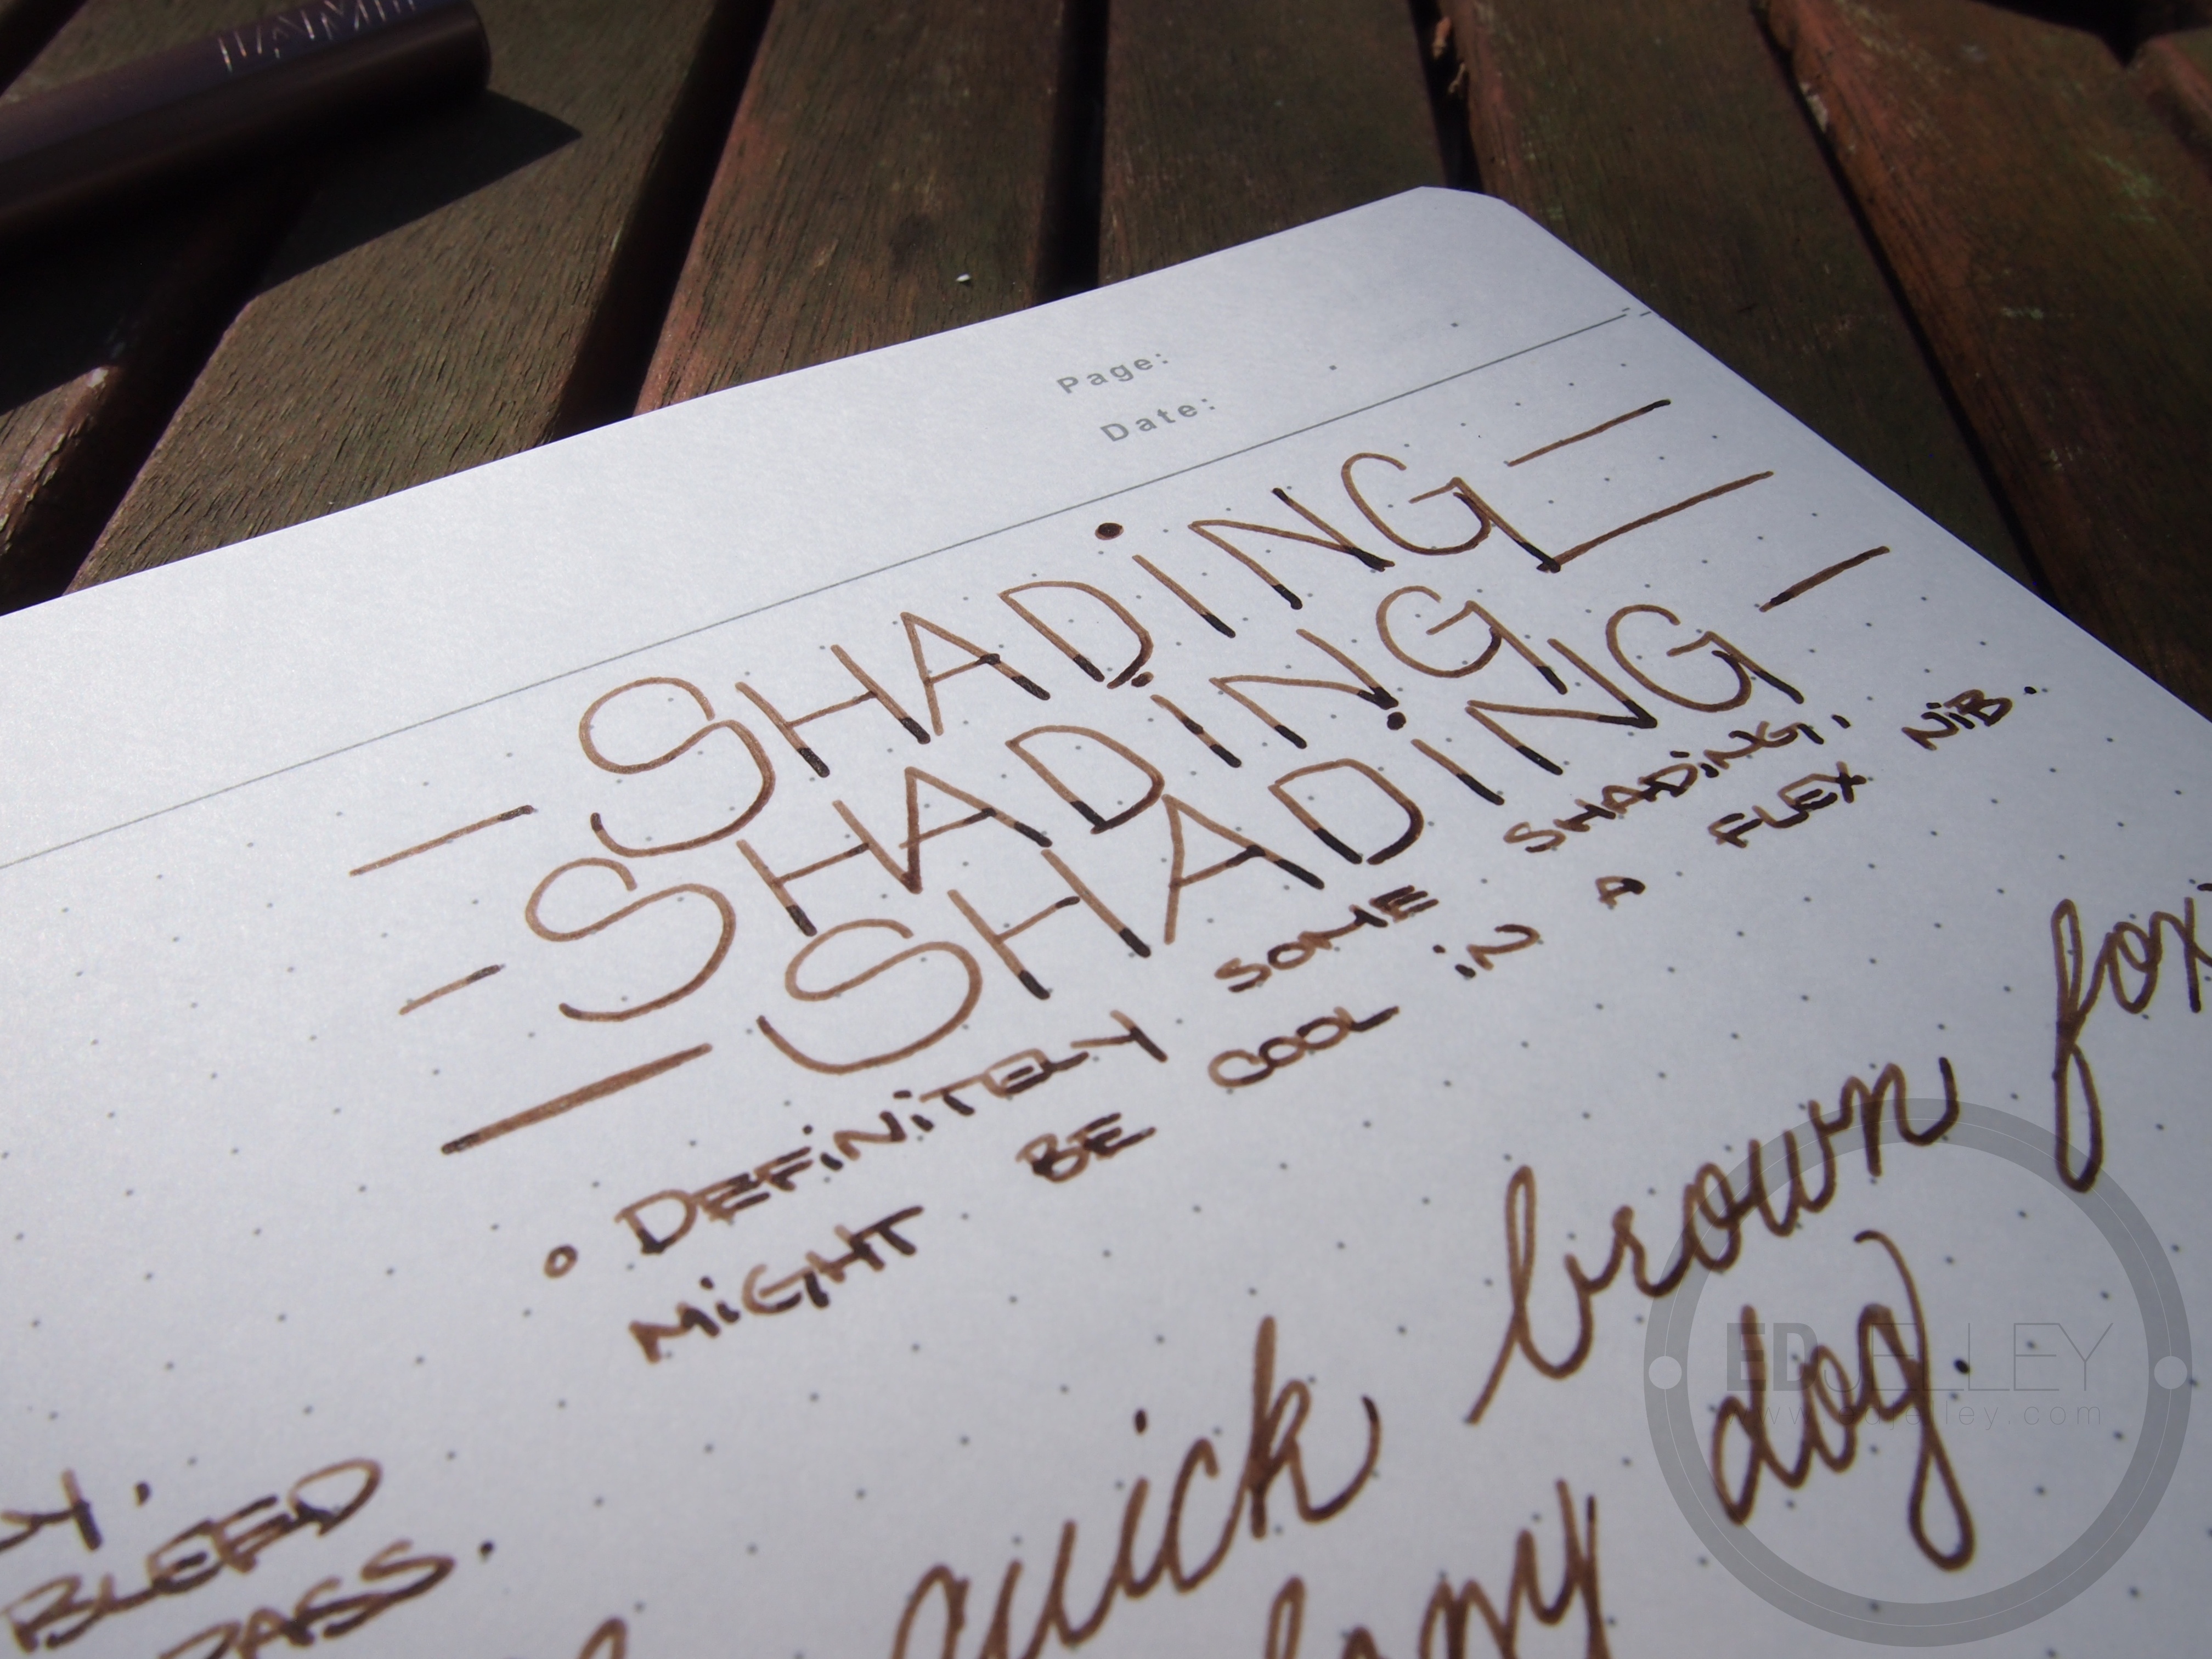 LAMY
Page:
Date:
- SHADiNG -
- SHADiNG -
- SHADiNG -
• DEFiNiTELY SOME SHADiNG.
MiGHT BE COOL iN A FLEX NiB.
quick brown fox
lazy dog.
BLEED
PASS.
EDJELLEY
www.edjelley.com